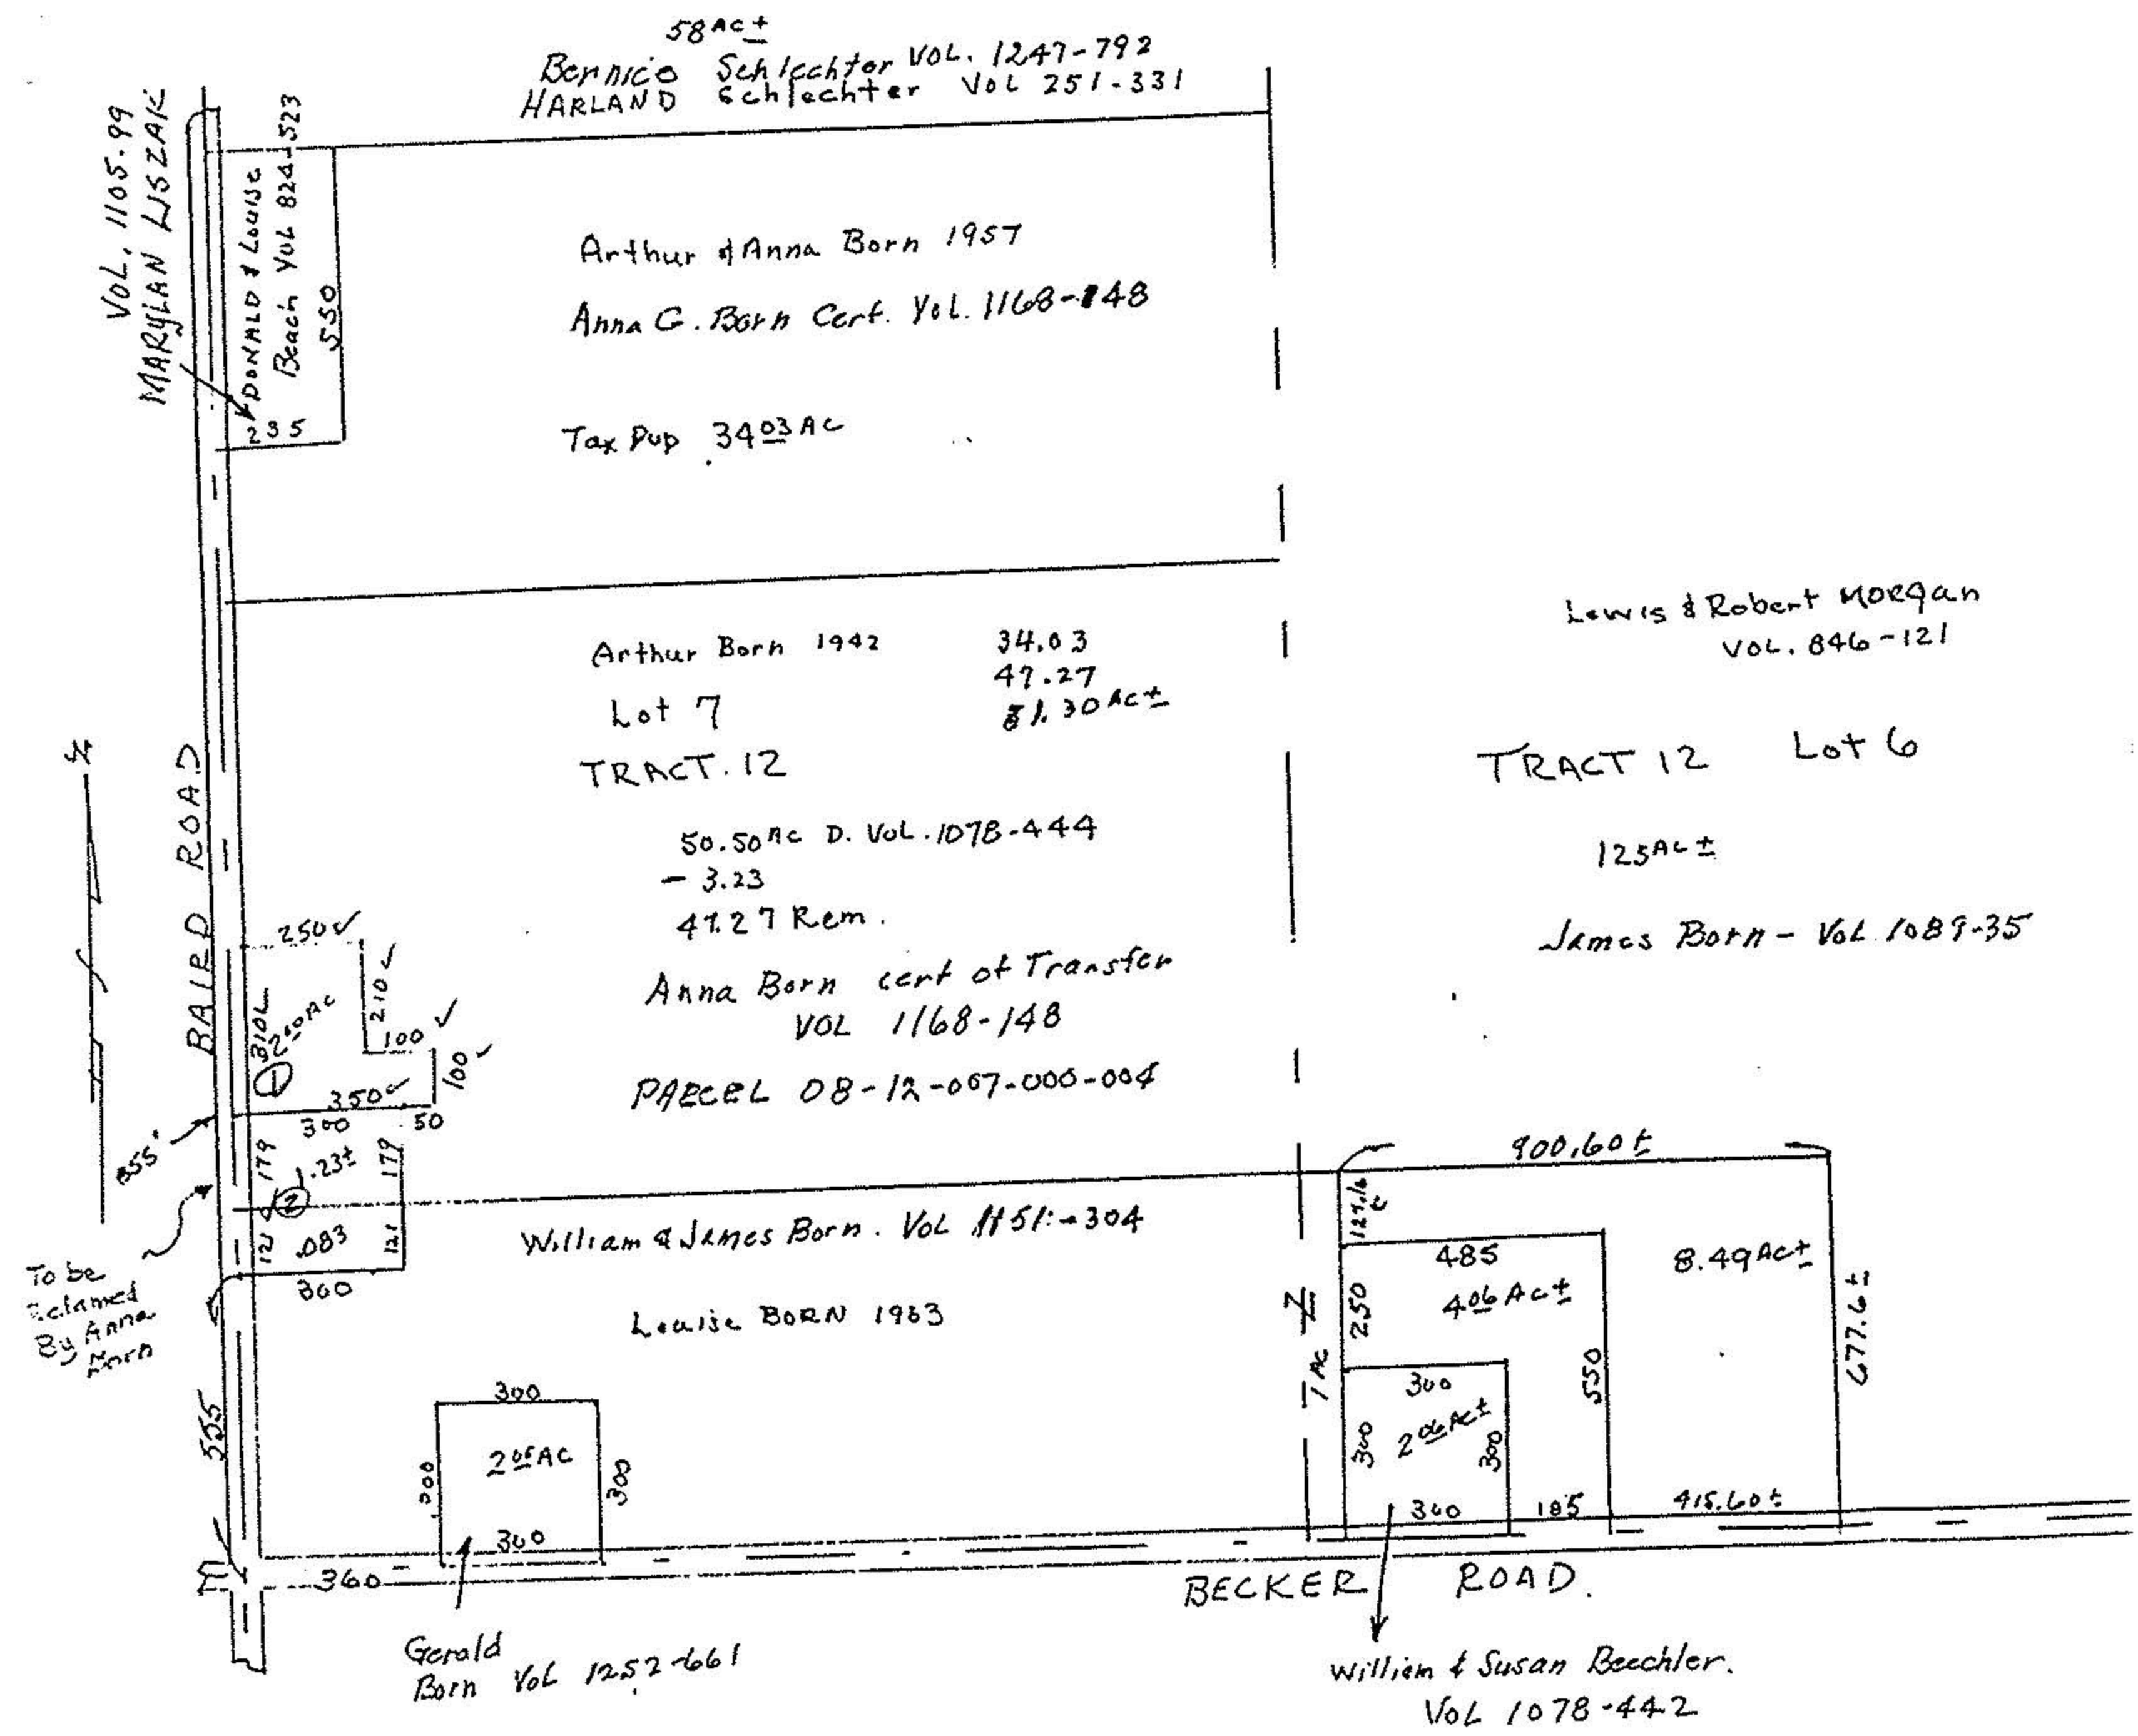 58 AC ±
Bernice Schlechter VOL. 1247-792
HARLAND Schlechter VOL 251-331
VOL. 1105-99
MARYLAN LISZAK
DONALD & Louise
Beach Vol 824-523
550
235
Arthur & Anna Born 1957
Anna G. Born Cert. Vol. 1168-148
Tax Dup 34 03 AC
Arthur Born 1942
34.03
47.27
81.30 AC ±
Lot 7
TRACT. 12
50.50 AC D. VOL. 1078-444
- 3.23
47.27 Rem.
Anna Born cert of Transfer
VOL 1168-148
PARCEL 08-12-007-000-004
Lewis & Robert Morgan
VOL. 846-121
TRACT 12 Lot 6
125 AC ±
James Born - Vol 1089-35
BAIRD ROAD
250 ✓
210 ✓
100 ✓
100 ✓
310
2 00 AC
1
350 ✓
300 50
855'
179
1.23±
179
2
121
.083
121
300
To be
Retained
By Anna
Born
555
William & James Born. Vol 1151-304
Louise BORN 1963
900.60 ±
127.6 ±
485
8.49 AC ±
4 06 AC ±
250
677.6 ±
7 AC
550
300
2 06 AC ±
300
300
300 185 415.60 ±
300
2 05 AC
300
300
300
360
BECKER ROAD.
Gerald
Born Vol 1252-661
William & Susan Beechler.
VOL 1078-442